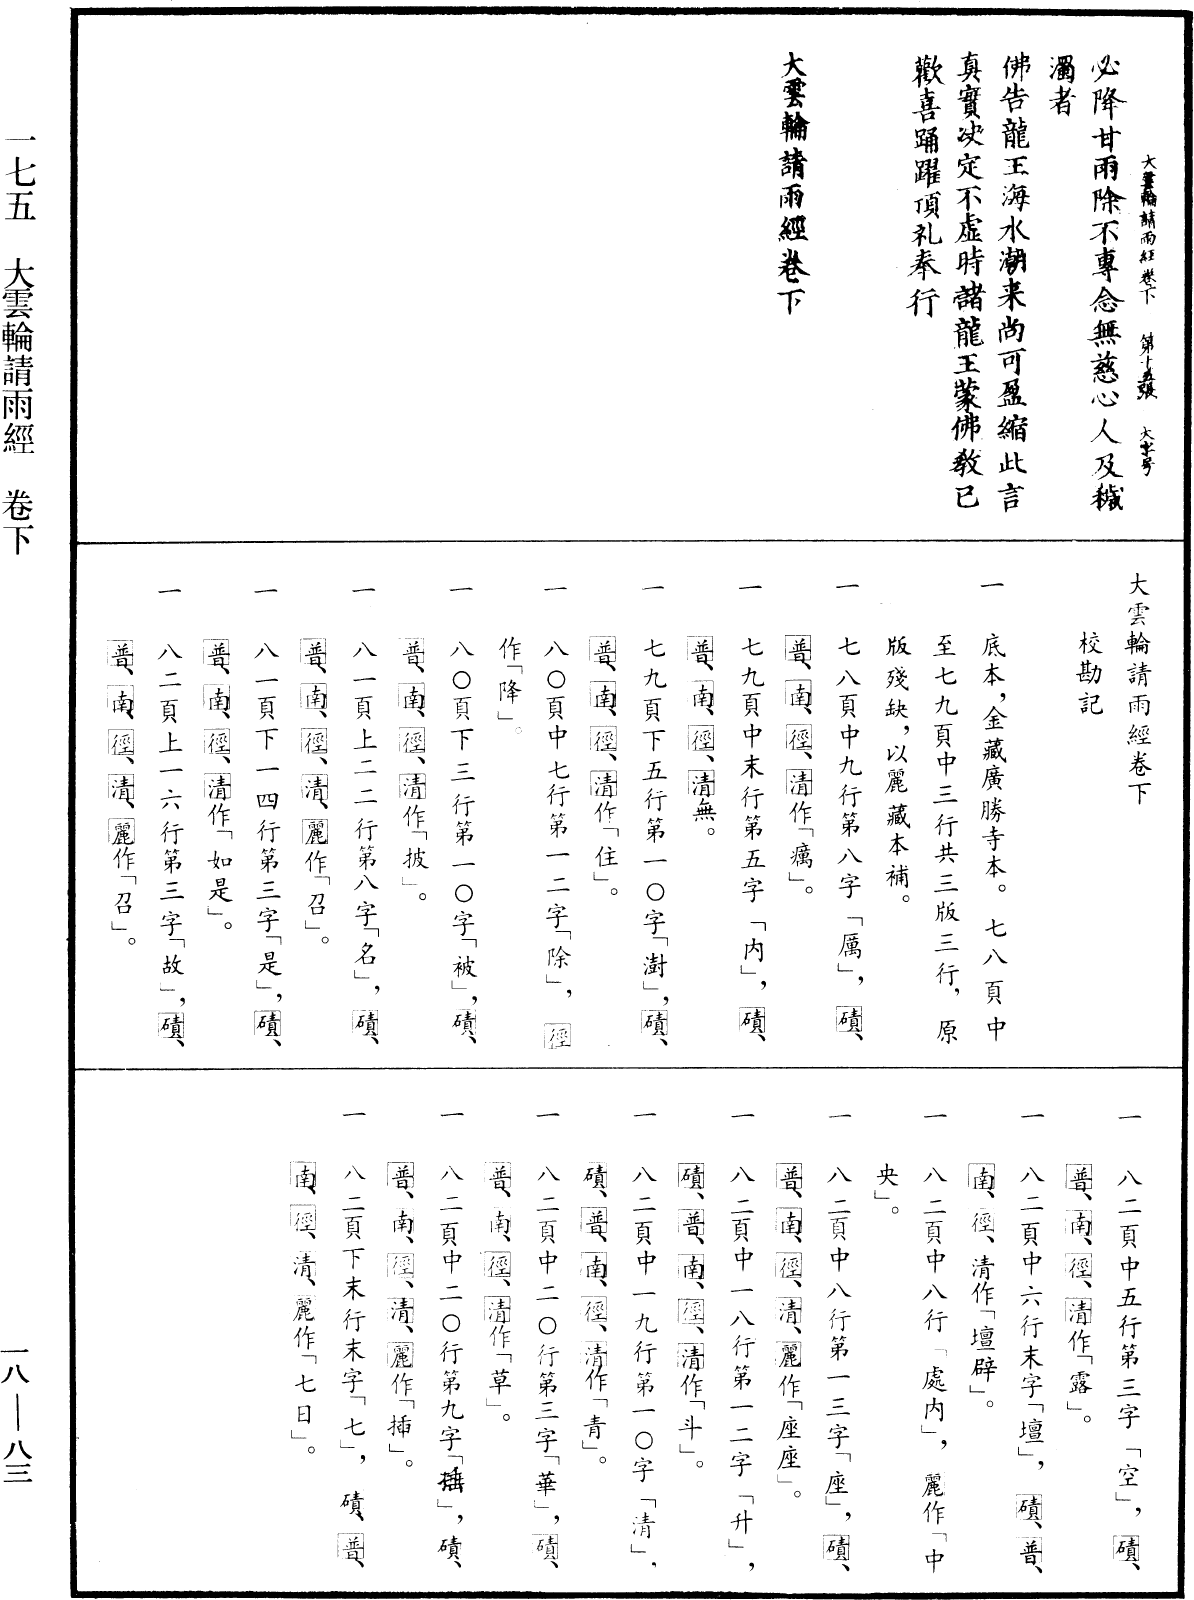 大雲輪請雨經卷下　第十五張　大字号
必降甘雨除不專念無慈心人及穢
濁者
佛告龍王海水潮来尚可盈縮此言
真實决定不虚時諸龍王蒙佛教已
歡喜踊躍頂礼奉行
大雲輪請雨經卷下
大雲輪請雨經卷下
校勘記
一　底本，金藏廣勝寺本。七八頁中
至七九頁中三行共三版三行，原
版殘缺，以麗藏本補。
一　七八頁中九行第八字「厲」，磧、
普、南、徑、清作「癘」。
一　七九頁中末行第五字「内」，磧、
普、南、徑、清無。
一　七九頁下五行第一〇字「澍」，磧、
普、南、徑、清作「住」。
一　八〇頁中七行第一二字「除」，徑
作「降」。
一　八〇頁下三行第一〇字「被」，磧、
普、南、徑、清作「披」。
一　八一頁上二二行第八字「名」，磧、
普、南、徑、清、麗作「召」。
一　八一頁下一四行第三字「是」，磧、
普、南、徑、清作「如是」。
一　八二頁上一六行第三字「故」，磧、
普、南、徑、清、麗作「召」。
一　八二頁中五行第三字「空」，磧、
普、南、徑、清作「露」。
一　八二頁中六行末字「壇」，磧、普、
南、徑、清作「壇辟」。
一　八二頁中八行「處内」，麗作「中
央」。
一　八二頁中八行第一三字「座」，磧、
普、南、徑、清、麗作「座座」。
一　八二頁中一八行第一二字「升」，
磧、普、南、徑、清作「斗」。
一　八二頁中一九行第一〇字「清」，
磧、普、南、徑、清作「青」。
一　八二頁中二〇行第三字「華」，磧、
普、南、徑、清作「草」。
一　八二頁中二〇行第九字「」，磧、
普、南、徑、清、麗作「插」。
一　八二頁下末行末字「七」，磧、普、
南、徑、清、麗作「七日」。
一七五　大雲輪請雨經　卷下
一八—八三